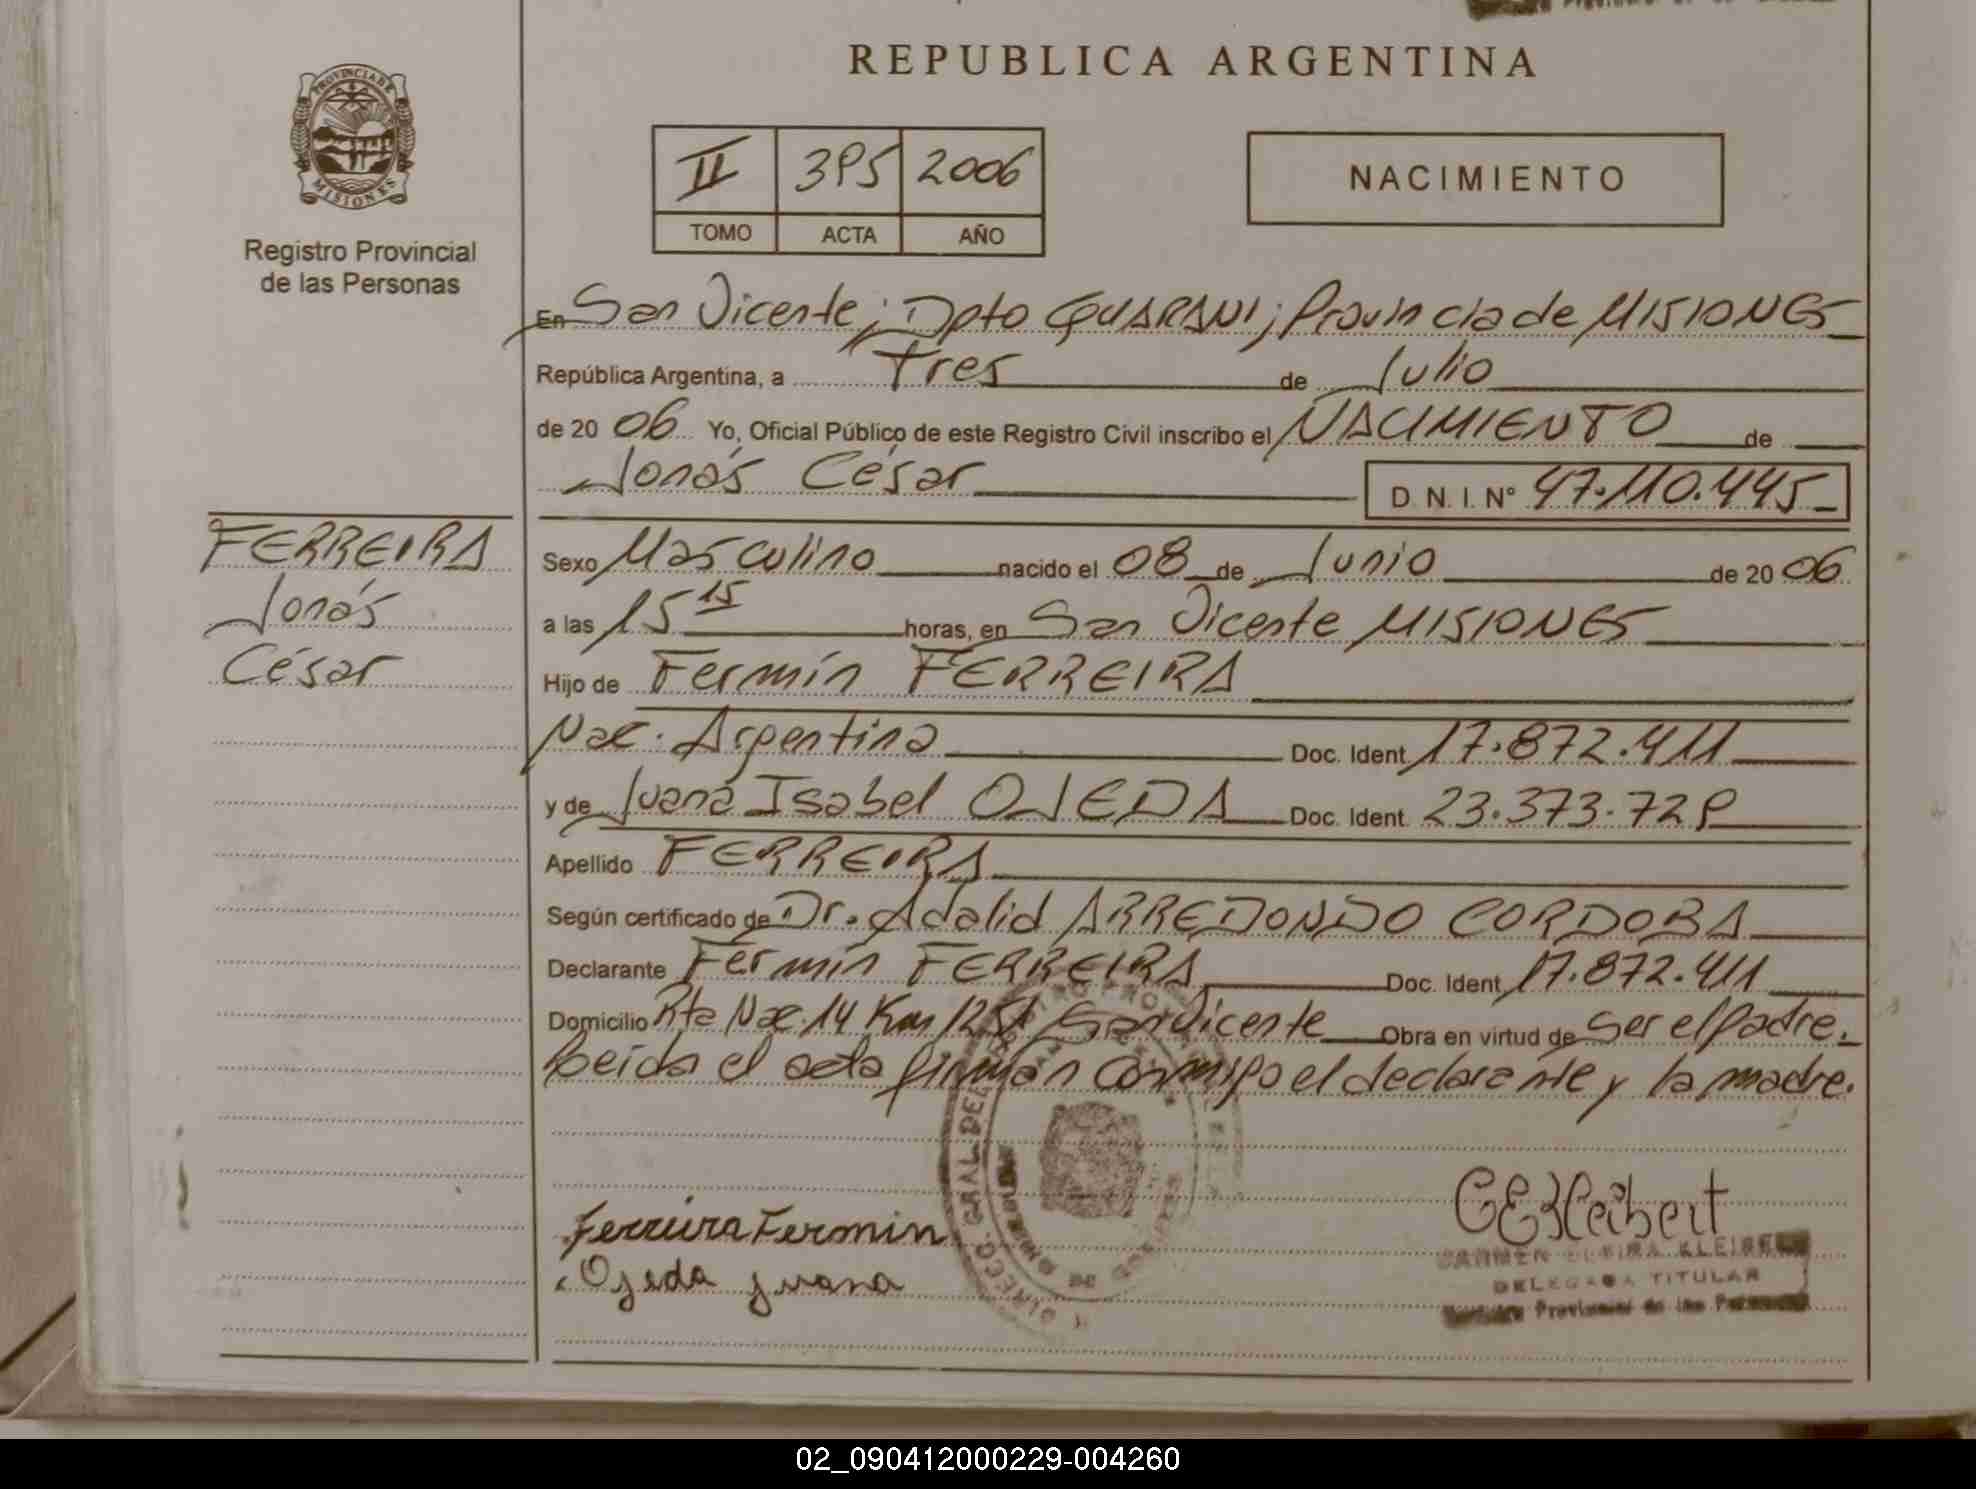 REPUBLICA ARGENTINA
PROVINCIA DE
MISIONES
Registro Provincial
de las Personas
II 395 2006
TOMO ACTA AÑO
NACIMIENTO
En San Vicente; Dpto GUARANI; Provincia de MISIONES
República Argentina, a tres de Julio
de 2006 Yo, Oficial Público de este Registro Civil inscribo el NACIMIENTO de
Jonás César D. N. I. N° 47.110.445
FERREIRA
Jonás
César
Sexo Masculino nacido el 08 de Junio de 2006
a las 15 15 horas, en San Vicente MISIONES
Hijo de Fermín FERREIRA
Nac. Argentina Doc. Ident. 17.872.411
y de Juana Isabel OJEDA Doc. Ident. 23.373.729
Apellido FERREIRA
Según certificado de Dr. Adalid ARREDONDO CORDOBA
Declarante Fermín FERREIRA Doc. Ident. 17.872.411
Domicilio Rta Nac. 14 Km San Vicente Obra en virtud de Ser el padre.
Leída el acta firman conmigo el declarante y la madre.
Ferreira Fermin
Ojeda Juana
CEKleibert
CARMEN ELEIRA KLEIBERT
DELEGADA TITULAR
Provincial de las Personas
02_090412000229-004260